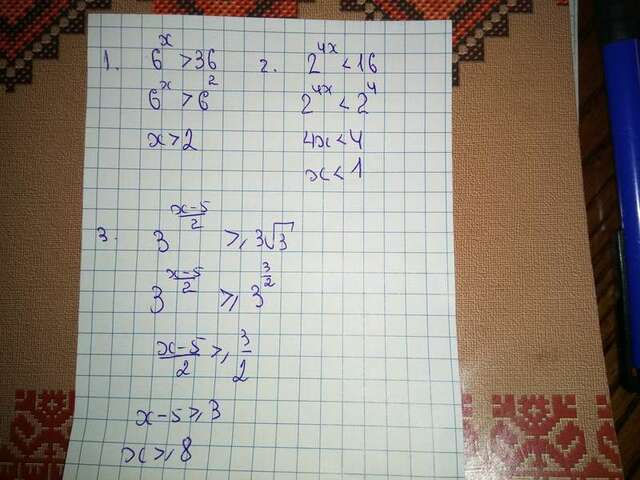 1. 6^x > 36
6^x > 6^2
x > 2
2. 2^{4x} < 16
2^{4x} < 2^4
4x < 4
x < 1
3. 3^{\frac{x-5}{2}} ⩾ 3\sqrt{3}
3^{\frac{x-5}{2}} ⩾ 3^{\frac{3}{2}}
\frac{x-5}{2} ⩾ \frac{3}{2}
x-5 ⩾ 3
x ⩾ 8